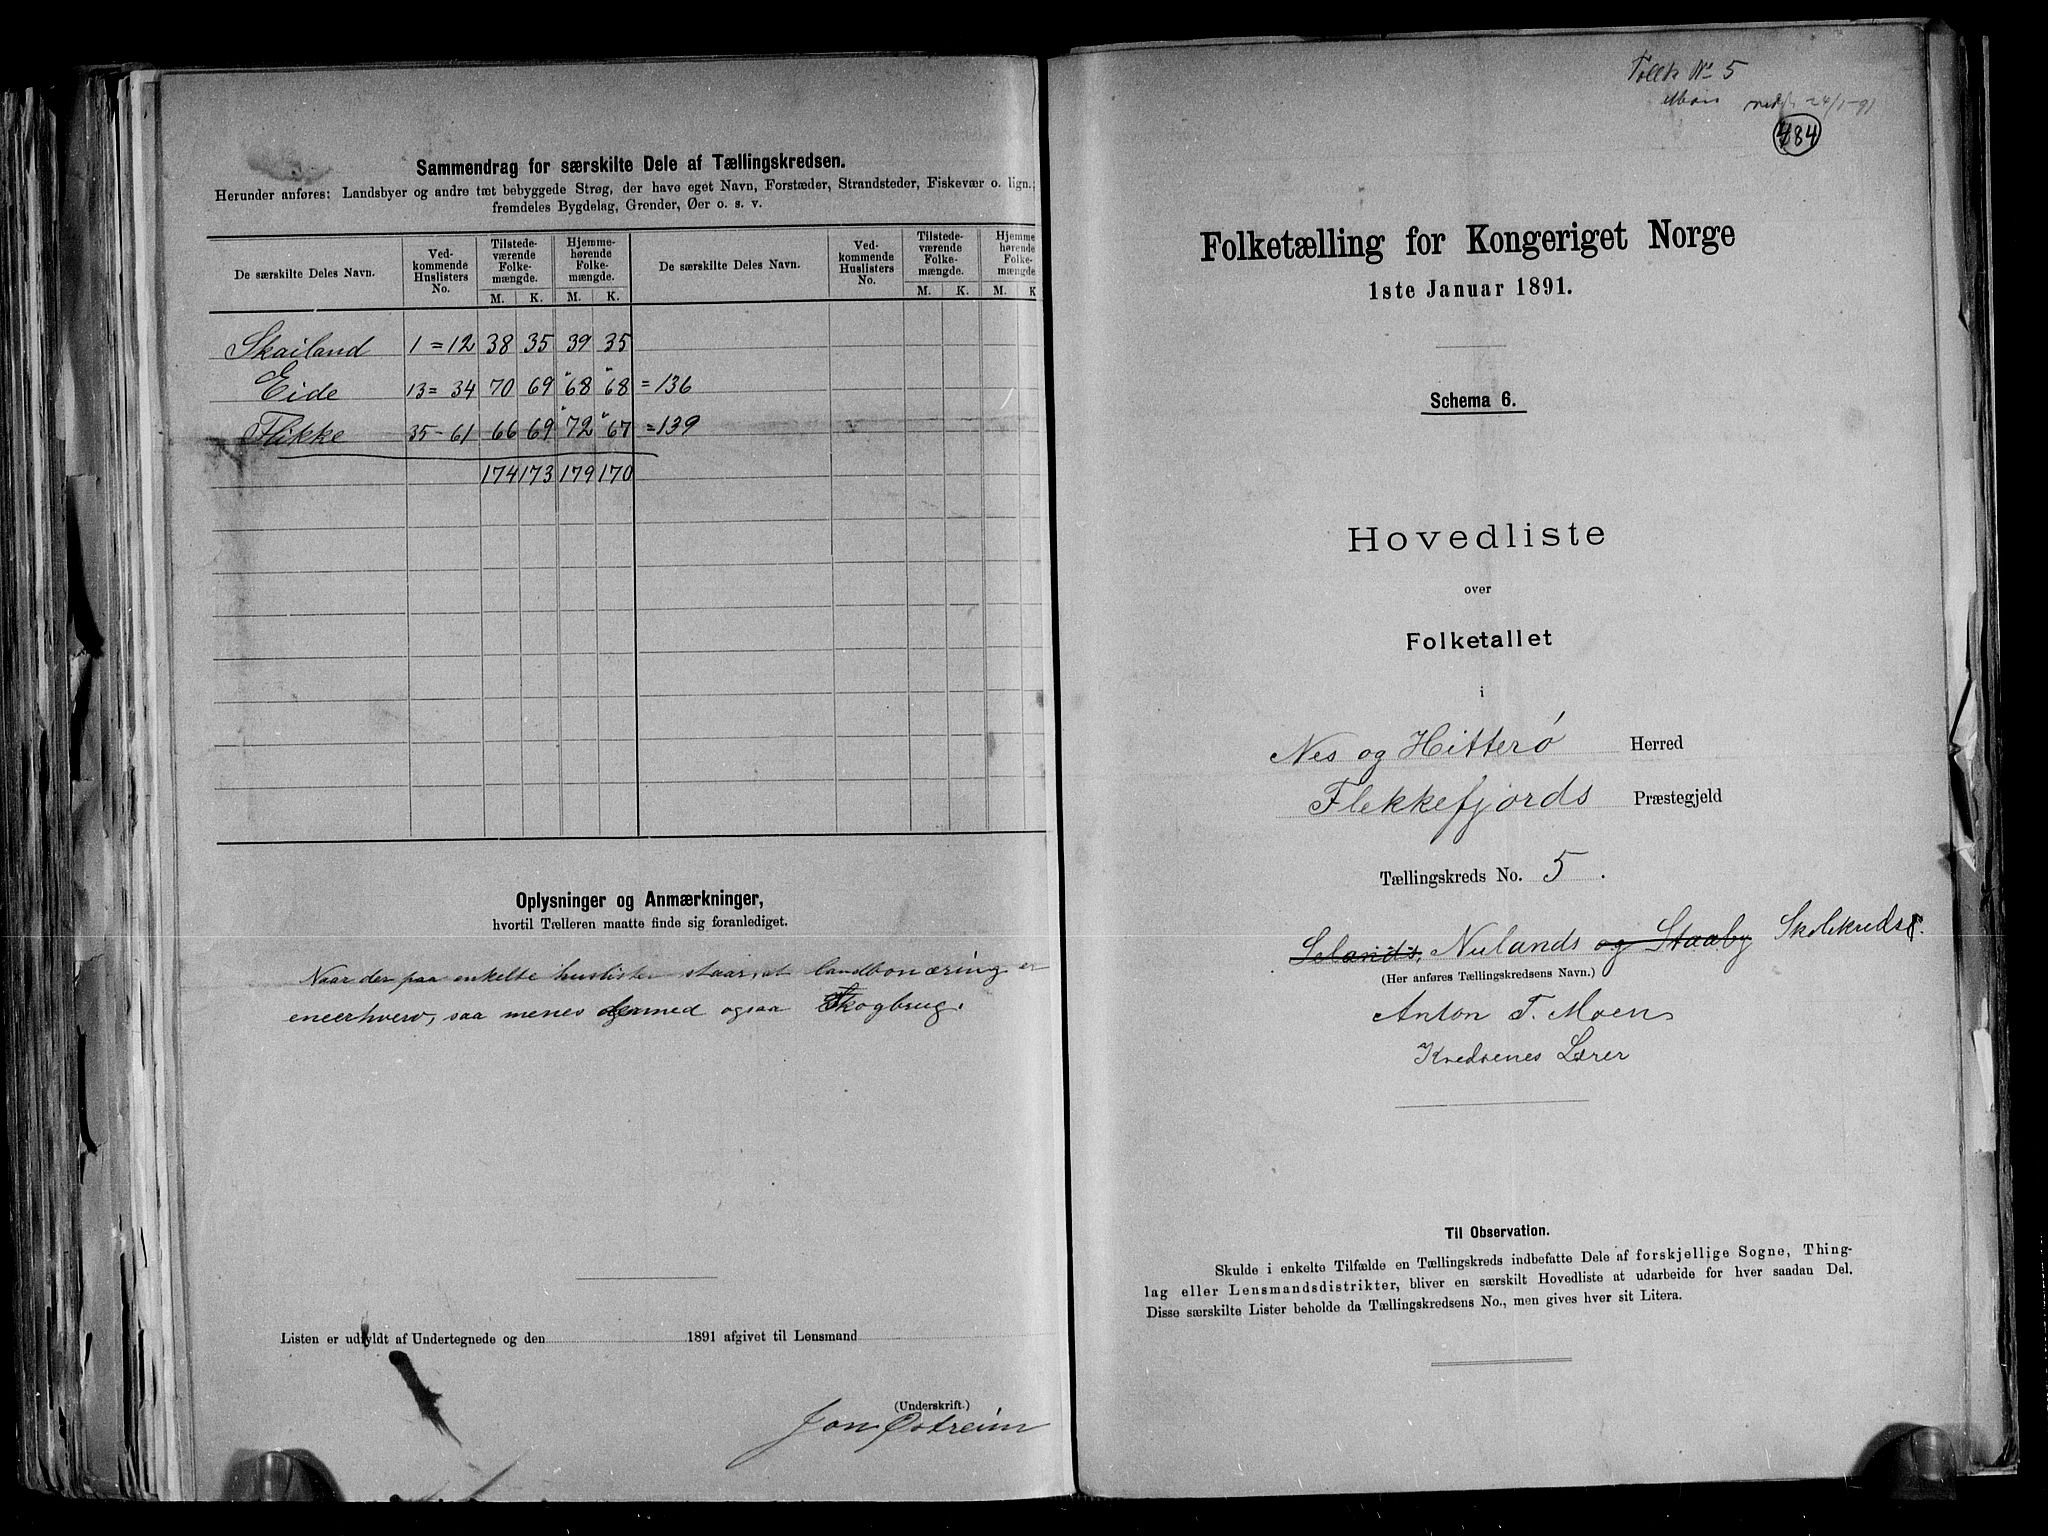 Sammendrag for særskilte Dele af Tællingskredsen.
Herunder anføres: Landsbyer og andre tæt bebyggede Strøg, der have eget Navn, Forstæder, Strandsteder, Fiskevær o. lign.;
fremdeles Bygdelag, Grender, Øer o. s. v.
De særskilte Deles Navn. Ved-kommende Huslisters No. Tilstede-værende Folke-mængde. Hjemme-hørende Folke-mængde. De særskilte Deles Navn. Ved-kommende Huslisters No. Tilstede-værende Folke-mængde. Hjemme hørende Folke-mængde
M. K. M. K. M. K. M. K
Skailand 1=12 38 35 39 35
Eide 13=34 70 69 "68 "68 =136
Flikke 35-61 66 69 "72 "67 =139
174 173 179 170
Oplysninger og Anmærkninger,
hvortil Tælleren maatte finde sig foranlediget.
Naar der paa enkelte huslister staar, at landbonæring er
eneerhverv, saa menes dermed ogsaa Skogbrug.
Listen er udfyldt af Undertegnede og den 1891 afgivet til Lensmand
(Underskrift.)
Jon Østreim
Tællk No 5
24/1-91
784
Folketælling for Kongeriget Norge
1ste Januar 1891.
Schema 6.
Hovedliste
over
Folketallet
i
Nes og Hitterø Herred
Flekkefjords Præstegjeld
Tællingskreds No. 5.
Selands, Nulands og Staaby Skolekreds.
(Her anføres Tællingskredsens Navn.)
Anton T. Moen
Kredsenes Lærer
Til Observation.
Skulde i enkelte Tilfælde en Tællingskreds indbefatte Dele af forskjellige Sogne, Thing-
lag eller Lensmandsdistrikter, bliver en særskilt Hovedliste at udarbeide for hver saadan Del.
Disse særskilte Lister beholde da Tællingskredsens No., men gives hver sit Litera.